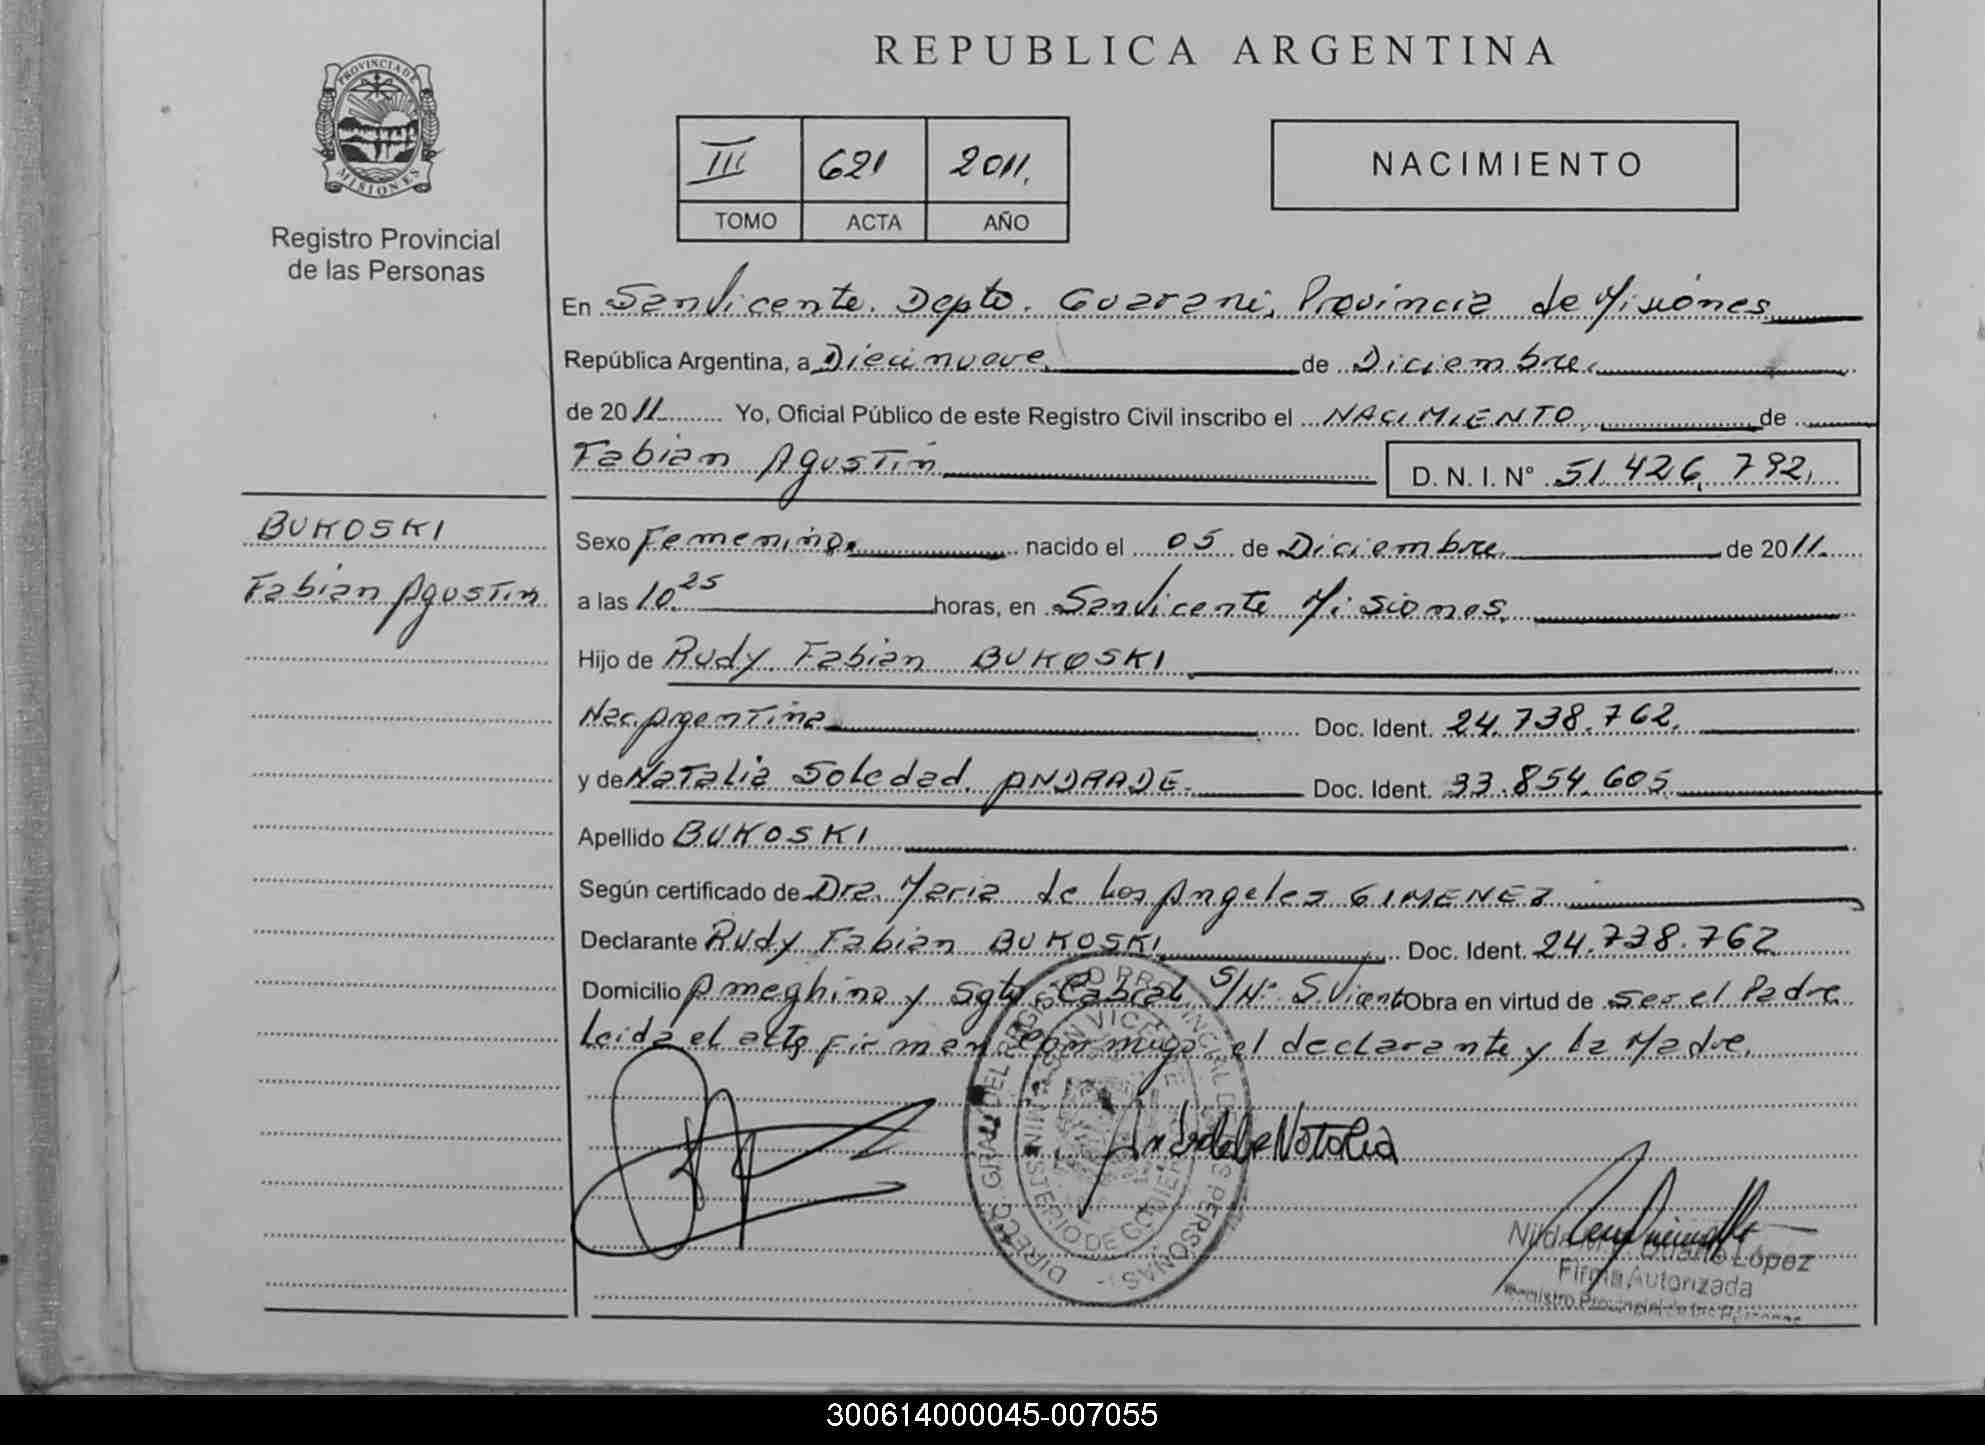 REPUBLICA ARGENTINA
PROVINCIA DE
MISIONES
Registro Provincial
de las Personas
III 621 2011.
TOMO ACTA AÑO
NACIMIENTO
En San Vicente. Depto. Guarani, Provincia de Misiónes
República Argentina, a Diecinueve. de Diciembre.
de 2011 Yo, Oficial Público de este Registro Civil inscribo el NACIMIENTO de
Fabian Agustin D. N. I. N° 51.426.792.
BUKOSKI
Fabian Agustin
Sexo Femenino. nacido el 05 de Diciembre de 2011.
a las 10.25 horas, en San Vicente Misiones.
Hijo de Rudy Fabian BUKOSKI
Nac. Argentina Doc. Ident. 24.738.762.
y de Natalia Soledad ANDRADE. Doc. Ident. 33.854.605
Apellido BUKOSKI
Según certificado de Dra. Maria de Los Angeles GIMENEZ
Declarante Rudy Fabian BUKOSKI Doc. Ident. 24.738.762
Domicilio Ameghino y Sgto Cabral S/N° S. Vicente Obra en virtud de ser el Padre
Leida el acta firman conmigo el declarante y la Madre.
DIRECC. GRAL DEL REGISTRO PROVINCIAL DE LAS PERSONAS
SAN VICENTE
MINISTERIO DE GOBIERNO
Andrade Natalia
López
Firma Autorizada
Registro Provincial de las Personas
300614000045-007055